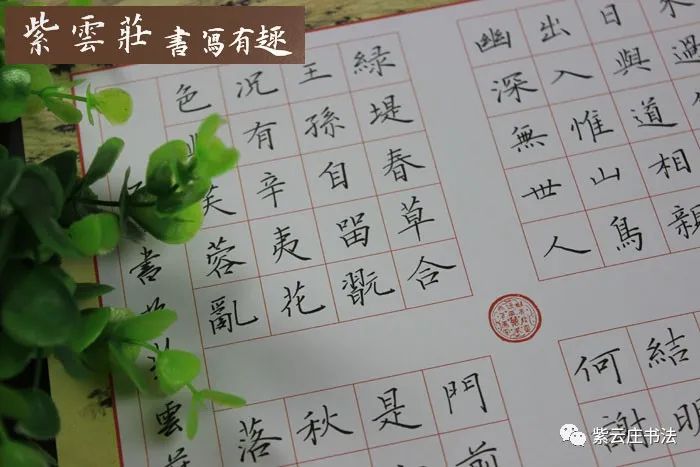 紫雲莊 書寫有趣
過
日與道相親
出入惟山鳥
幽深無世人
綠堤春草合
王孫自留翫
況有辛夷花
色
芙蓉亂
結明
何謝
門前
是
秋
落
書
雲
紫云庄书法